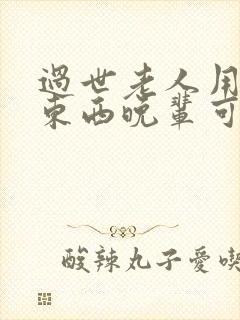 過世老人用
東西晚輩可
酸辣丸子愛喫